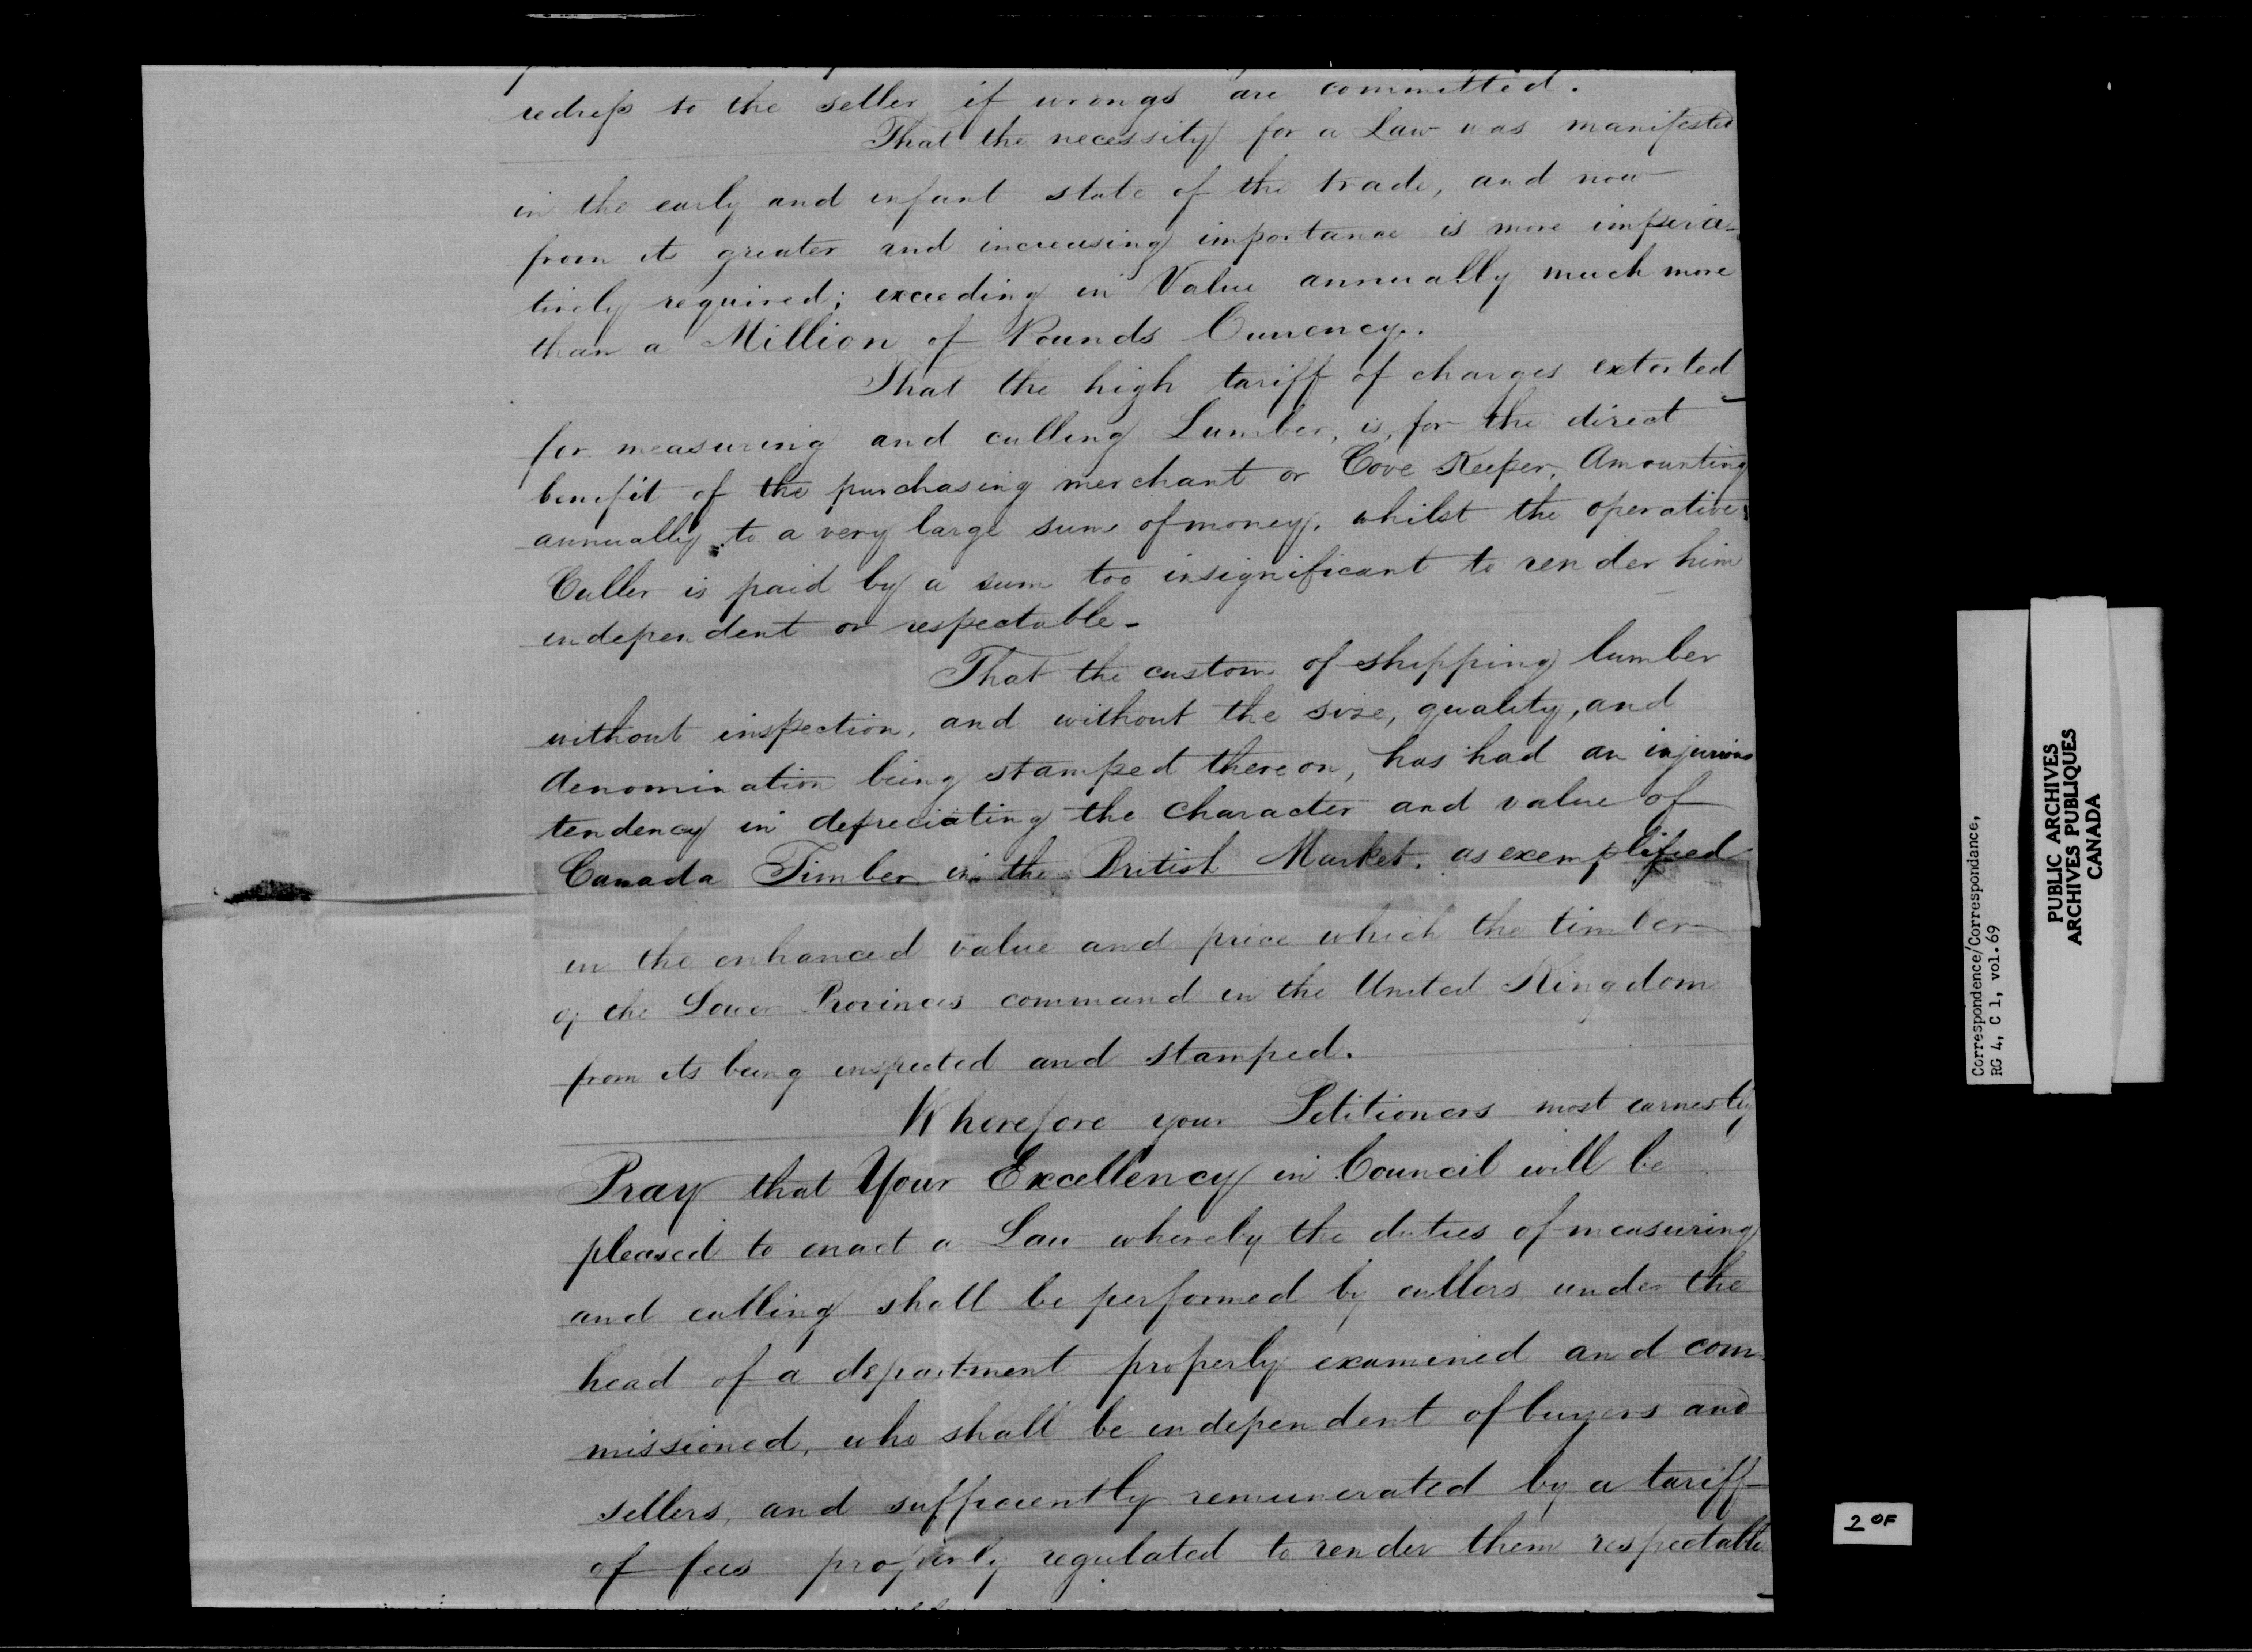 redress to the seller if wrongs are committed.
That the necessity for a Law was manifested
in the early and infant state of the trade, and now
from its greater and increasing importance is more impera-
tively required; exceeding in Value annually much more
than a Million of Pounds Currency.
That the high tariff of charges extorted
for measuring and culling Lumber, is, for the direct
benefit of the purchasing merchant or Cove Keeper, Amounting
annually to a very large sum of money, whilst the operative
Culler is paid by a sum too insignificant to render him
independent or respectable-
That the custom of shipping lumber
without inspection, and without the size, quality, and
denomination being stamped thereon, has had an injurious
tendency in depreciating the character and value of
Canada Timber in the British Market, as exemplified
in the enhanced value and price which the timber
of the Lower Provinces command in the United Kingdom
from its being inspected and stamped.
Wherefore your Petitioners most earnestly
Pray that Your Excellency in Council will be
pleased to enact a Law whereby the duties of measuring
and culling shall be performed by cullers under the
head of a department properly examined and com-
missioned, who shall be independent of buyers and
sellers, and sufficiently remunerated by a tariff
of fees properly regulated to render them respectable
Correspondence/Correspondance,
RG 4, C 1, vol.69
PUBLIC ARCHIVES
ARCHIVES PUBLIQUES
CANADA
2 OF